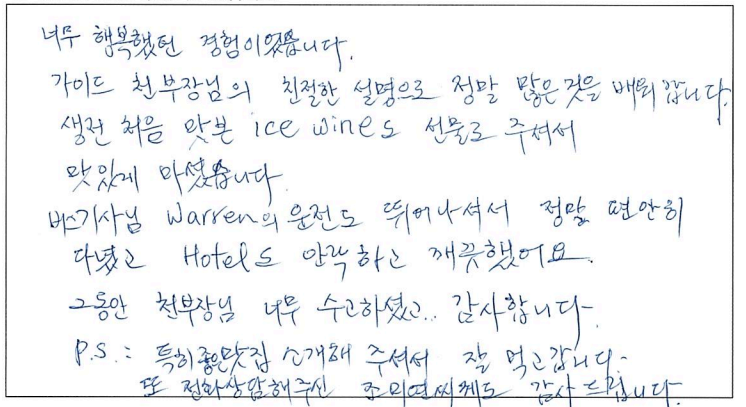 너무 행복했던 경험이었습니다.
가이드 천부장님의 친절한 설명으로 정말 많은것을 배워 갑니다.
생전 처음 맛본 ice wine도 선물로 주셔서
맛있게 마셨습니다.
버스기사님 Warren의 운전도 뛰어나셔서 정말 편안히
다녔고 Hotel도 안락하고 깨끗했어요.
그동안 천부장님 너무 수고하셨고.. 감사합니다.
P.S.: 특히좋은맛집 소개해 주셔서 잘 먹고갑니다.
또 전화상담해주신 조미연씨께도 감사 드립니다.